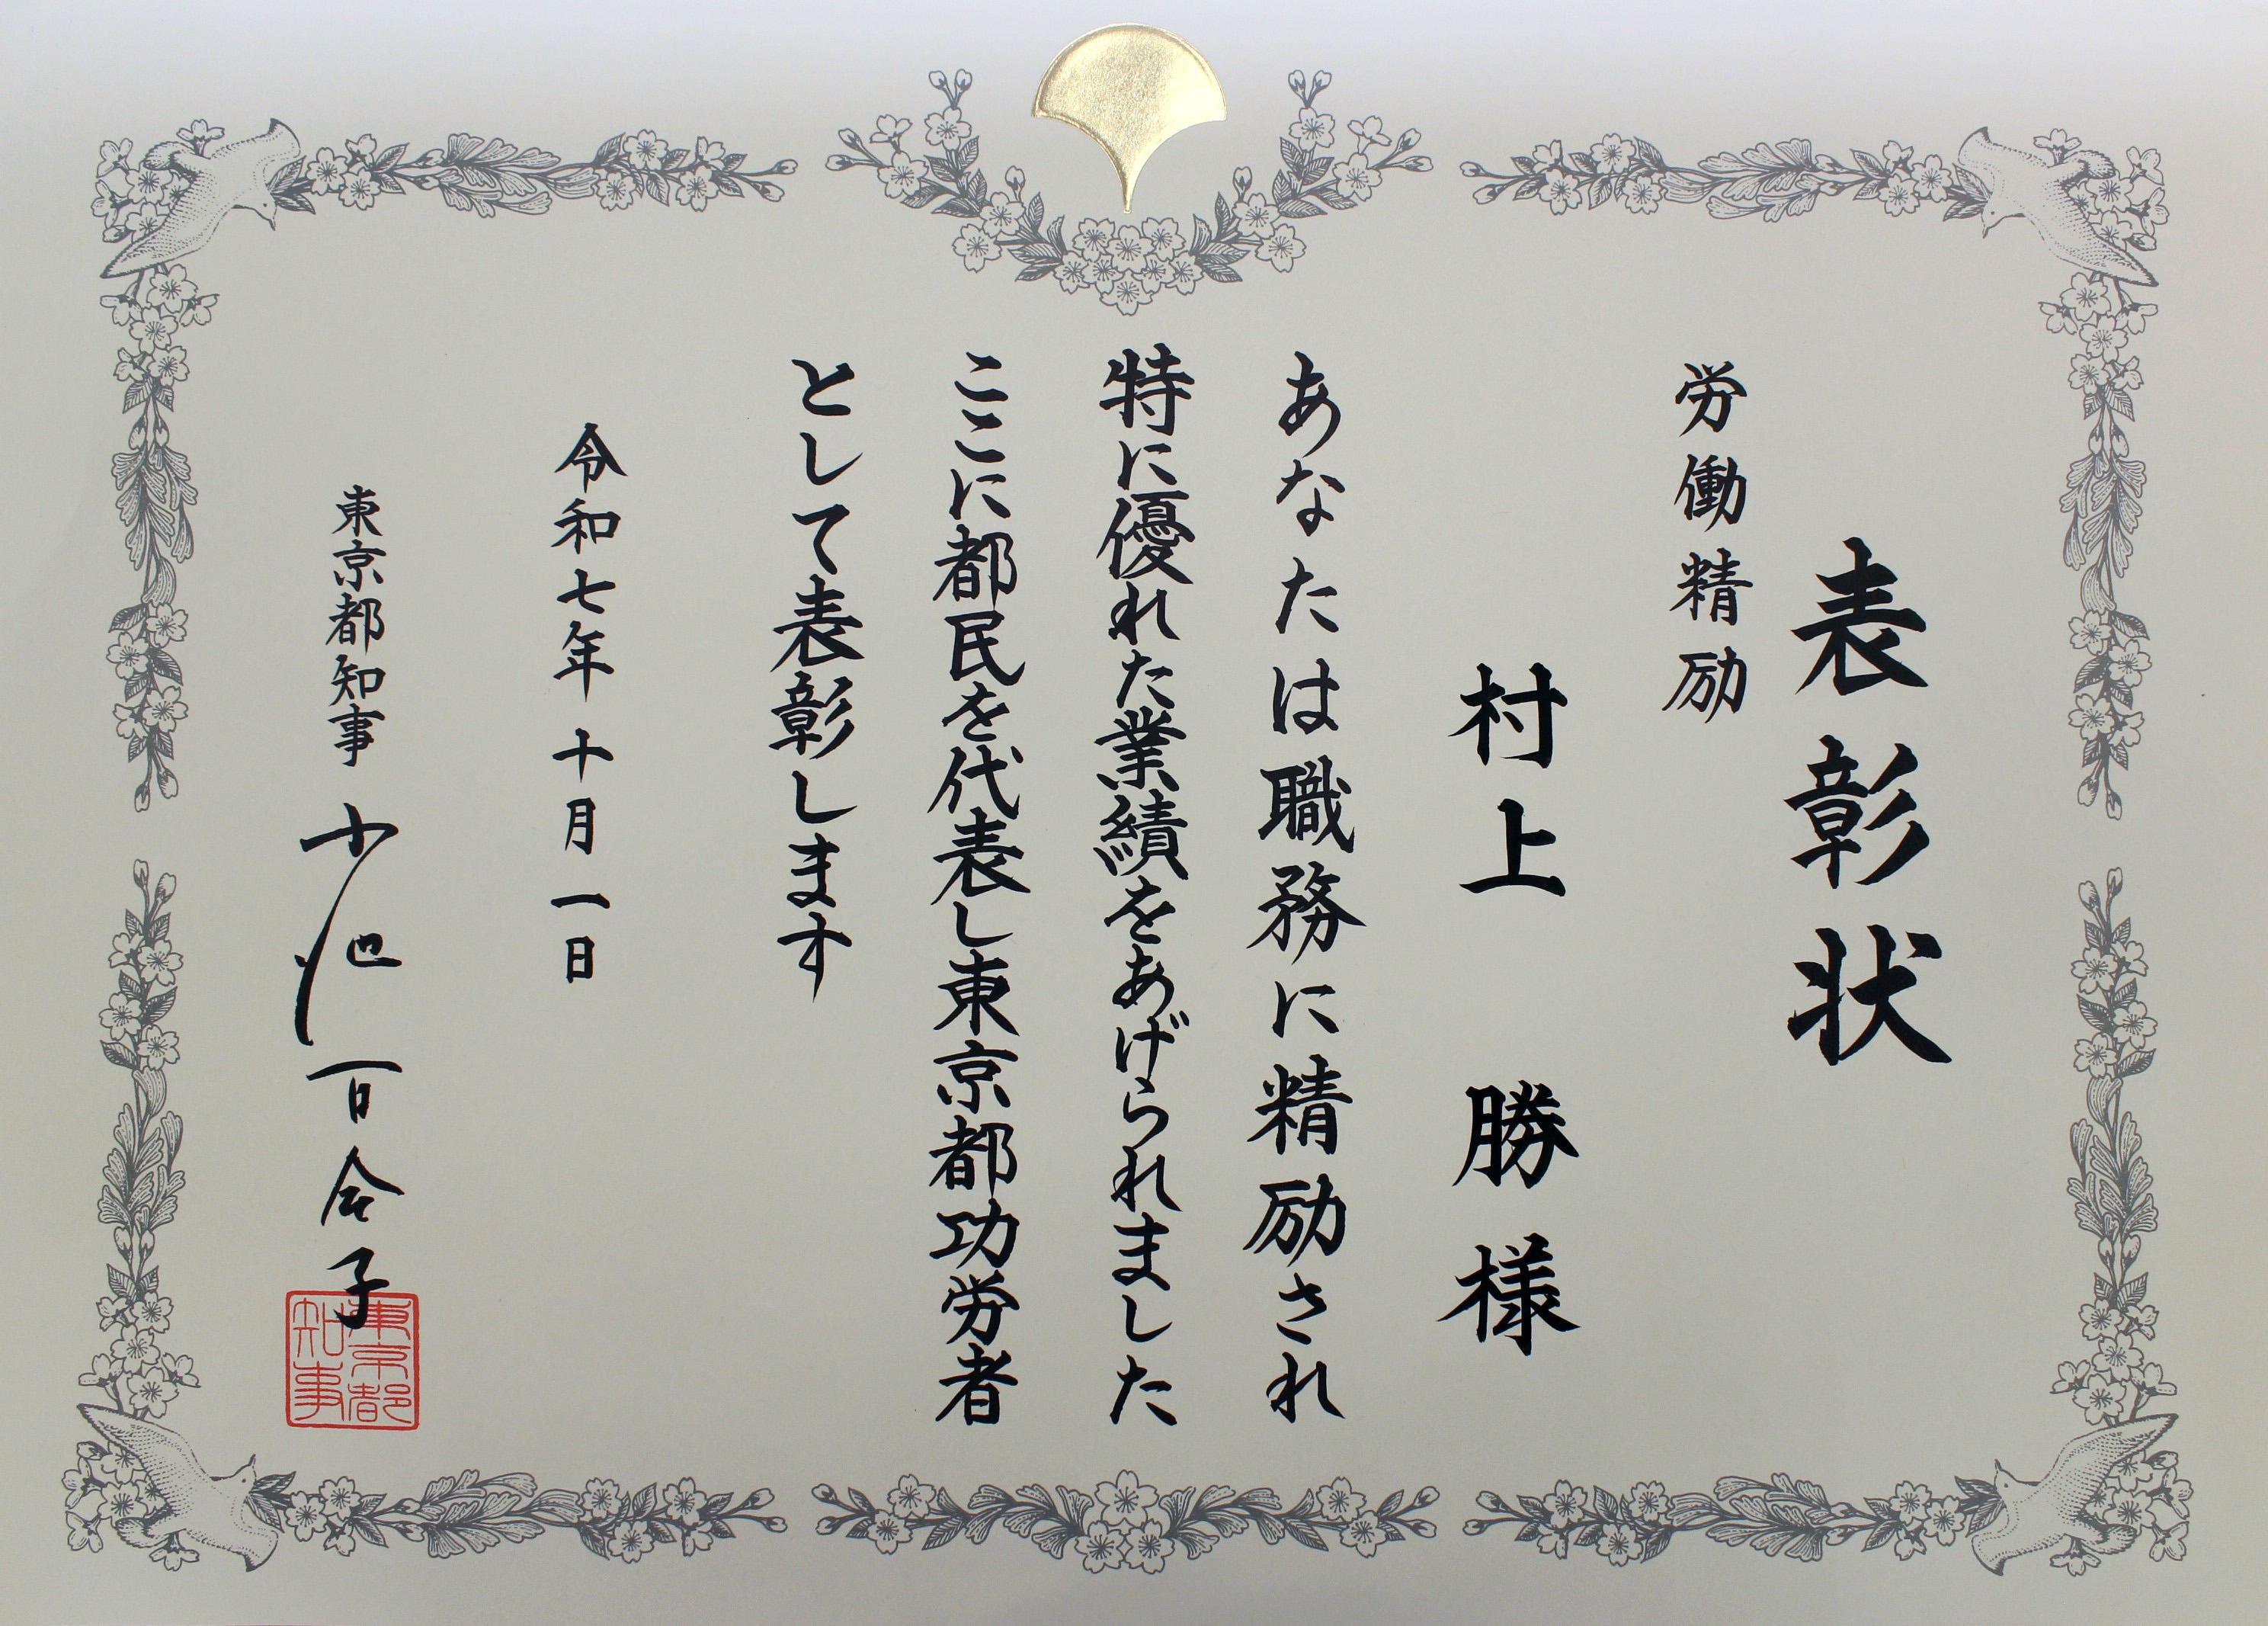 表彰状
労働精励
村上 勝 様
あなたは職務に精励され
特に優れた業績をあげられました
ここに都民を代表し東京都功労者
として表彰します
令和七年十月一日
東京都知事 小池百合子
東京都
知事